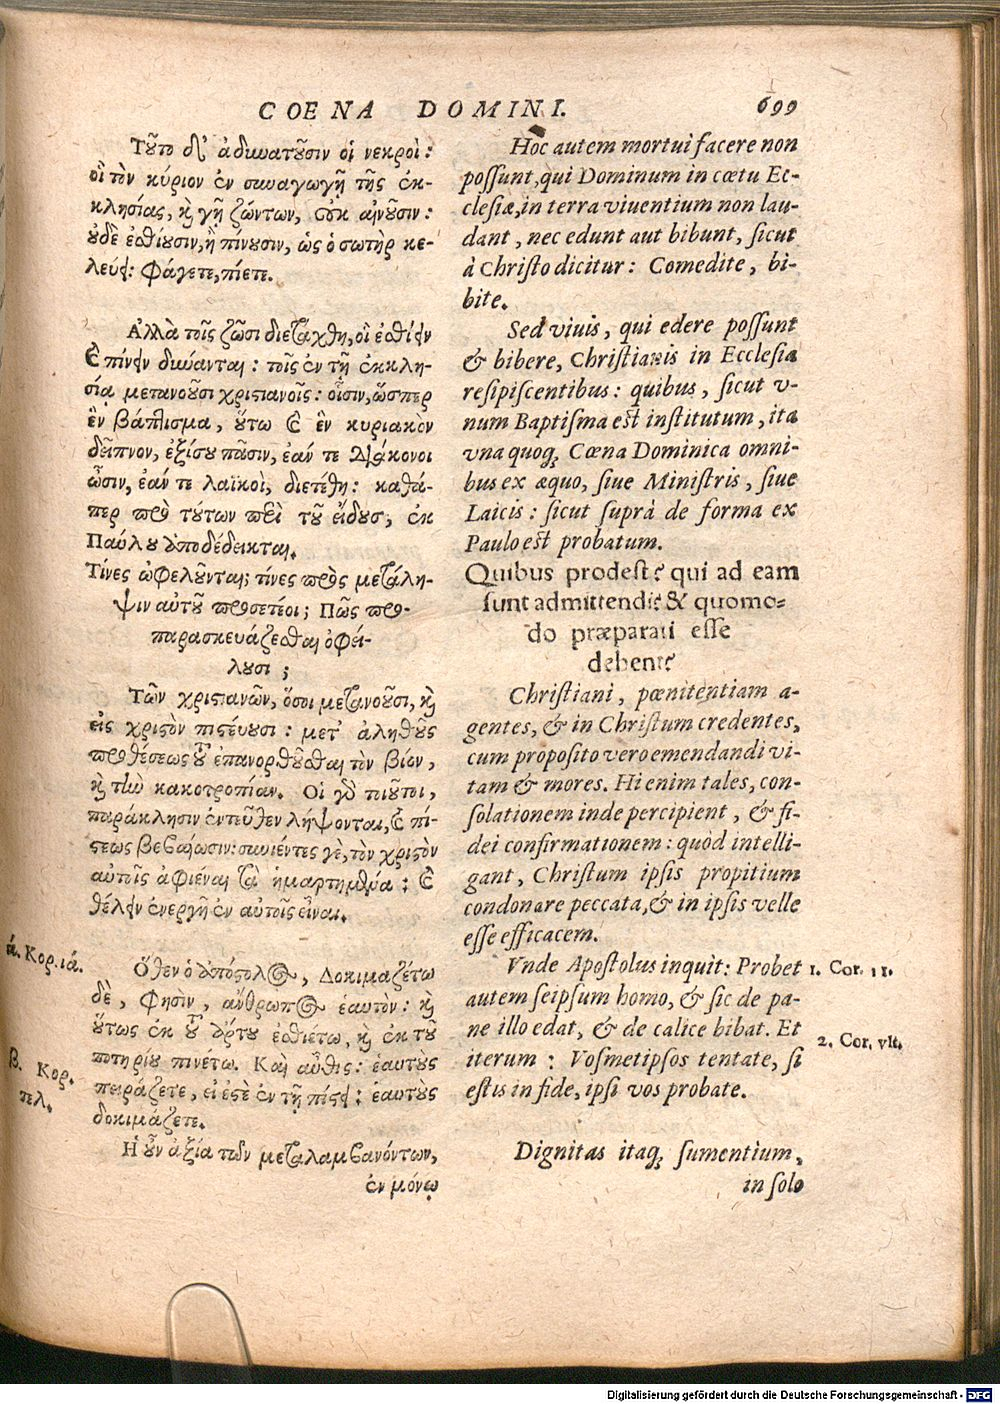 COENA DOMINI. 699
Τοῦτο δ' ἀδυνατοῦσιν οἱ νεκροὶ:
οἳ τὸν κύριον ἐν συναγωγῇ τῆς ἐκ-
κλησίας, κ̀ γῇ ζώντων, οὐκ αἰνοῦσιν:
οὐδὲ ἐσθίουσιν, ἢ πίνουσιν, ὡς ὁ σωτὴρ κε-
λεύει: Φάγετε, πίετε.
Ἀλλὰ τοῖς ζῶσι διετάχθη, οἳ ἐσθίειν
καὶ πίνειν δύνανται: τοῖς ἐν τῇ ἐκκλη-
σίᾳ μετανοοῦσι χριστιανοῖς: οἷσιν, ὥσπερ
ἓν βάπτισμα, οὕτω καὶ ἓν κυριακὸν
δεῖπνον, ἐξίσου πᾶσιν, ἐάν τε διάκονοι
ὦσιν, ἐάν τε λαϊκοὶ, διετέθη: καθά-
περ πρὸ τούτων περὶ τοῦ εἴδους, ἐκ
Παύλου ἀποδέδεικται.
Τίνες ὠφελοῦνται; τίνες πρὸς μετάλη-
ψιν αὐτοῦ προσετέοι; Πῶς προ-
παρασκευάζεσθαι ὀφεί-
λουσι;
Τῶν χριστιανῶν, ὅσοι μετανοοῦσι, κ̀
εἰς χριστὸν πιστεύουσι: μετ' ἀληθοῦς
προθέσεως τοῦ ἐπανορθοῦσθαι τὸν βίον,
κ̀ τὴν κακοτροπίαν. Οἱ γὰρ τοιοῦτοι,
παράκλησιν ἐντεῦθεν λήψονται, καὶ πί-
στεως βεβαίωσιν: συνιέντες γὲ, τὸν χριστὸν
αὐτοῖς ἀφιέναι τὰ ἡμαρτημένα: καὶ
θέλειν ἐνεργῆ ἐν αὐτοῖς εἶναι.
ά. Κορ. ιά.
Ὅθεν ὁ ἀπόστολος, Δοκιμαζέτω
δὲ, Φησὶν, ἄνθρωπος ἑαυτὸν: κ̀
οὕτως ἐκ τοῦ ἄρτου ἐσθιέτω, κ̀ ἐκ τοῦ
ποτηρίου πινέτω. Καὶ αὖθις: ἑαυτοὺς
β. Κορ.
τελ.
πειράζετε, εἰ ἐστὲ ἐν τῇ πίστει: ἑαυτοὺς
δοκιμάζετε.
Ἡ οὖν ἀξία τῶν μεταλαμβανόντων,
ἐν μόνῳ
Hoc autem mortui facere non
possunt, qui Dominum in cœtu Ec-
clesiæ, in terra viuentium non lau-
dant, nec edunt aut bibunt, sicut
à Christo dicitur: Comedite, bi-
bite.
Sed viuis, qui edere possunt
& bibere, Christianis in Ecclesia
resipiscentibus: quibus, sicut v-
num Baptisma est institutum, ita
vna quoq; Cœna Dominica omni-
bus ex æquo, siue Ministris, siue
Laicis: sicut suprà de forma ex
Paulo est probatum.
Quibus prodest? qui ad eam
sunt admittendi? & quomo-
do præparati esse
debent?
Christiani, pœnitentiam a-
gentes, & in Christum credentes,
cum proposito vero emendandi vi-
tam & mores. Hi enim tales, con-
solationem inde percipient, & fi-
dei confirmationem: quòd intelli-
gant, Christum ipsis propitium
condonare peccata, & in ipsis velle
esse efficacem.
Vnde Apostolus inquit: Probet
1. Cor. 11.
autem seipsum homo, & sic de pa-
ne illo edat, & de calice bibat. Et
2. Cor. vlt.
iterum: Vosmetipsos tentate, si
estis in fide, ipsi vos probate.
Dignitas itaq; sumentium,
in solo
Digitalisierung gefördert durch die Deutsche Forschungsgemeinschaft - DFG